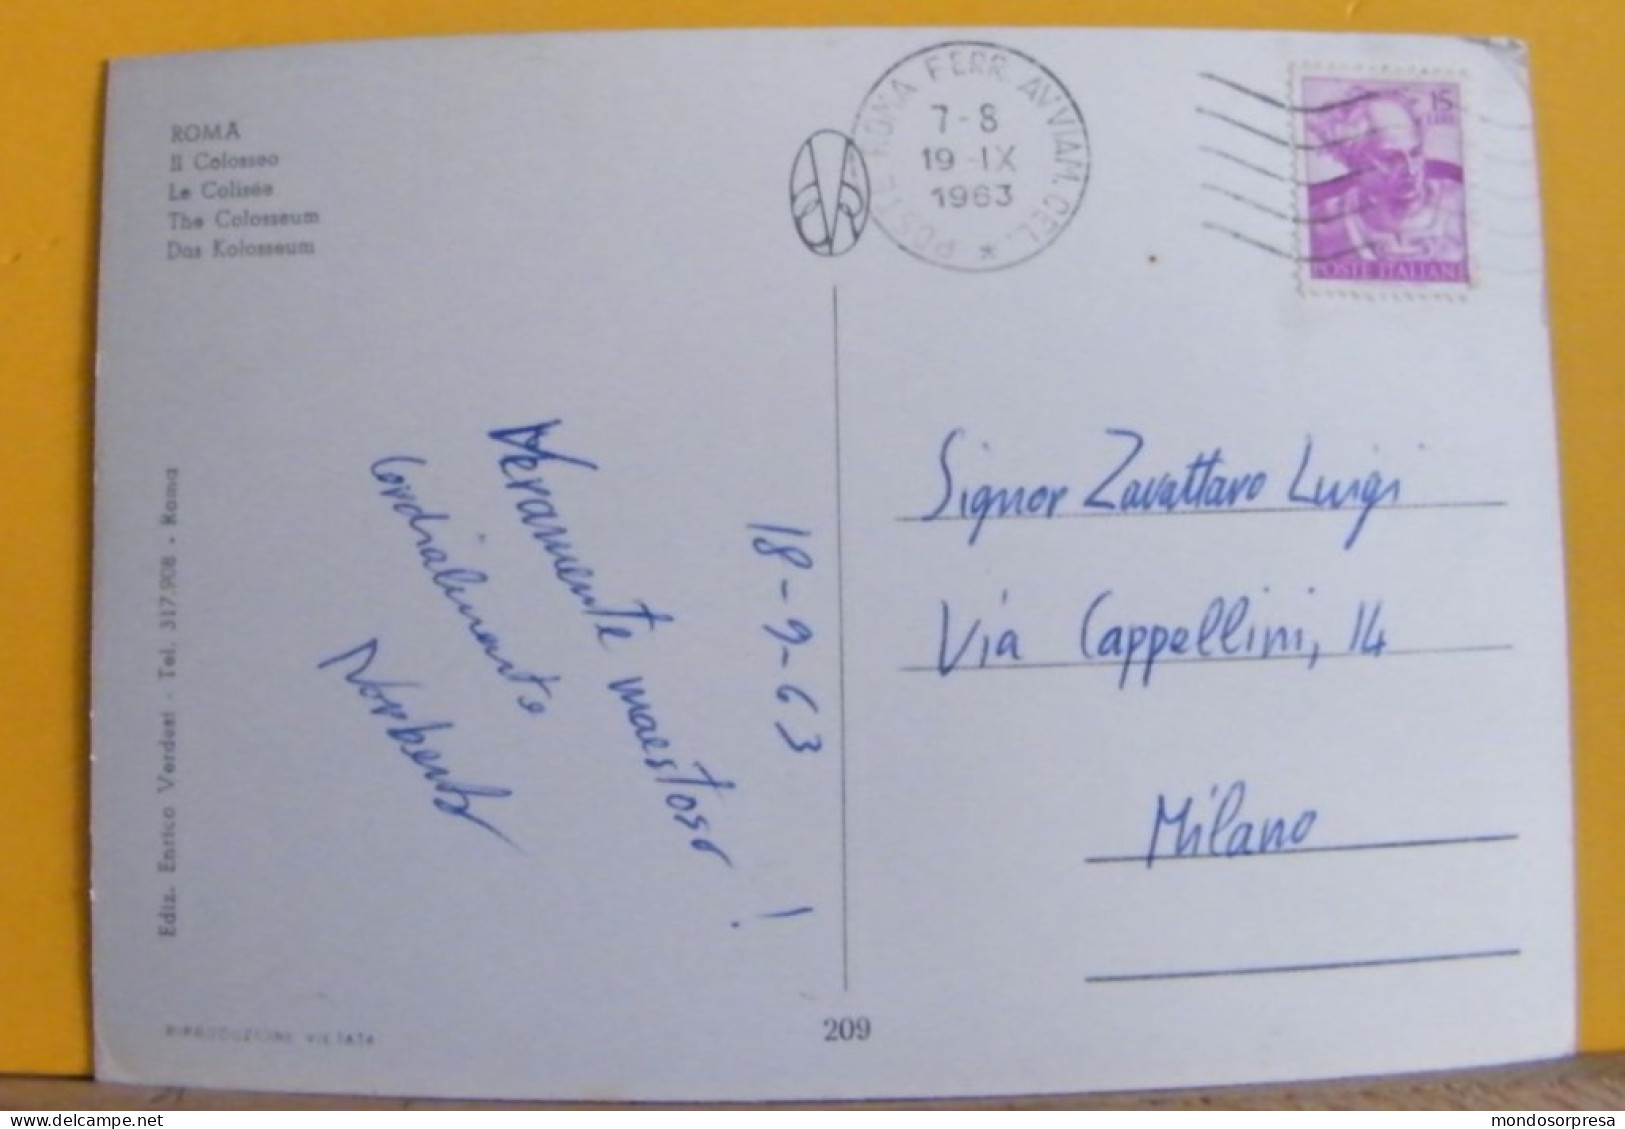 ROMA
Il Colosseo
Le Colisée
The Colosseum
Das Kolosseum
POSTE ROMA FERR. AVVIAM. CEL. *
7-8
19-IX
1963
15
LIRE
POSTE ITALIANE
18-9-63
Veramente maestoso!
Cordialmente
Norberto
Signor Zavattaro Luigi
Via Cappellini, 14
Milano
Ediz. Enrico Verdesi - Tel. 317.908 - Roma
RIPRODUZIONE VIETATA
209
mondosorpresa